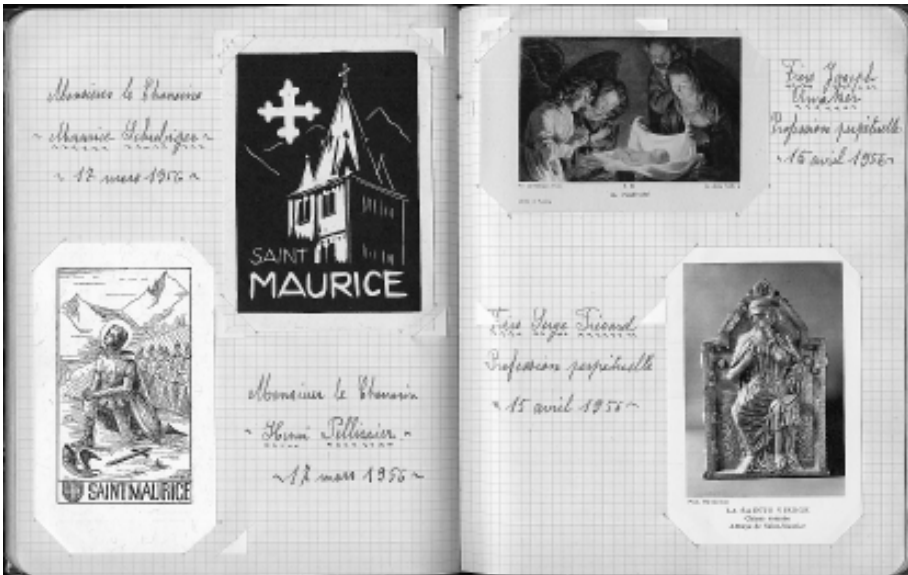 Monsieur le Chanoine
~ Maurice Schubiger ~
~ 17 mars 1956 ~
SAINT
MAURICE
SAINT MAURICE
Monsieur le Chanoine
~ Henri Pellissier ~
~ 17 mars 1956 ~
Frère Joseph
Profession perpétuelle
~ 15 avril 1956 ~
Frère Serge
Profession perpétuelle
~ 15 avril 1956 ~
LA SAINTE VIERGE
Abbaye de Saint-Maurice